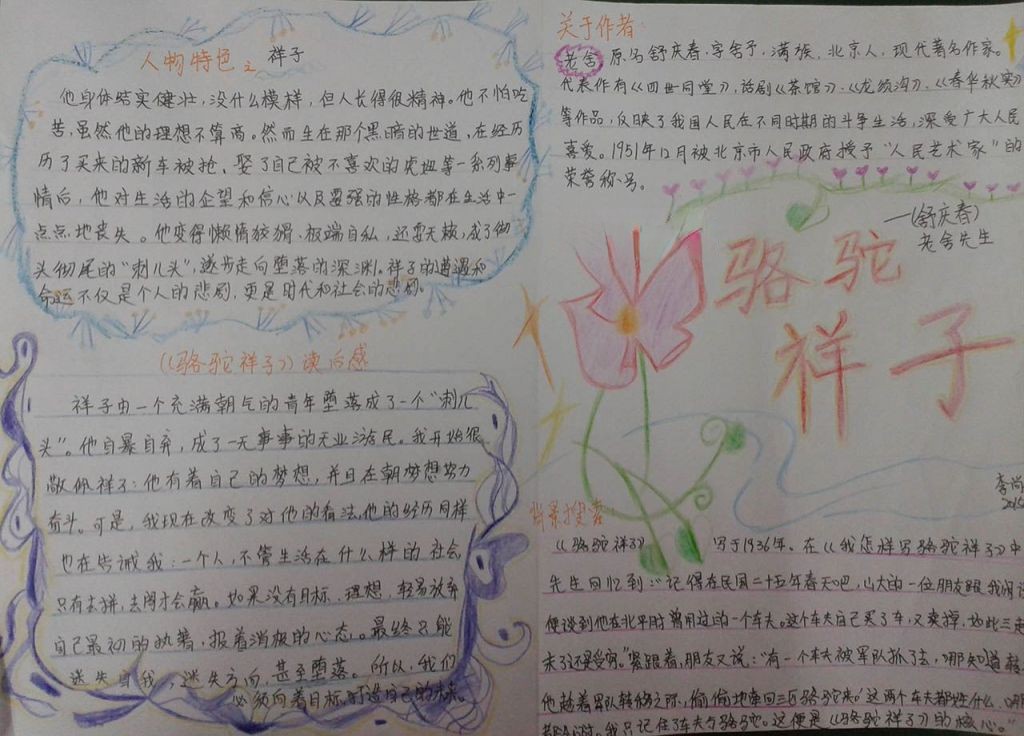 人物特色之 祥子
他身体结实健壮,没什么模样,但人长得很精神。他不怕吃
苦,虽然他的理想不算高。然而生在那个黑暗的世道,在经历
历了买来的新车被抢、娶了自己被不喜欢的虎妞等一系列事
情后,他对生活的企望和信心以及要强的性格都在生活中一
点点地丧失。他变得懒惰狡猾、极端自私,还耍无赖,成了彻
头彻尾的“刺儿头”,逐步走向堕落的深渊。祥子的遭遇和
命运不仅是个人的悲剧,更是时代和社会的悲剧。
《骆驼祥子》读后感
祥子由一个充满朝气的青年堕落成了一个“刺儿
头”。他自暴自弃,成了一无事事的无业游民。我开始很
敬佩祥子:他有着自己的梦想,并且在朝梦想努力
奋斗。可是,我现在改变了对他的看法,他的经历同样
也在告诫我:一个人,不管生活在什么样的社会
只有去拼,去闯才会赢。如果没有目标、理想,轻易放弃
自己最初的执着,报着消极的心态。最终只能
迷失自我,迷失方向,甚至堕落。所以,我们
必须向着目标,打造自己的未来。
关于作者:
老舍,原名舒庆春,字舍予,满族,北京人,现代著名作家。
代表作有《四世同堂》,话剧《茶馆》、《龙须沟》、《春华秋实》
等作品,反映了我国人民在不同时期的斗争生活,深受广大人民
喜爱。1951年12月被北京市人民政府授予“人民艺术家”的
荣誉称号。
—(舒庆春)
老舍先生
骆驼
祥子
李尚
背景搜索:
《骆驼祥子》 写于1936年。在《我怎样写骆驼祥子》中
先生回忆到:“记得在民国二十五年春天吧,山大的一位朋友跟我闲
便谈到他在北平时曾用过的一个车夫。这个车夫自己买了车,又卖掉,如此三起
末了还是受穷。”紧跟着,朋友又说:“有一个车夫被军队抓了去,哪知道
他趁着军队转移之际,偷偷地牵回三匹骆驼来。”这两个车夫都姓什么
我只记住了车夫与骆驼。这便是《骆驼祥子》的核心。”